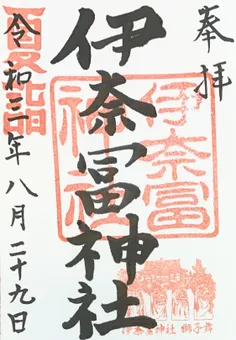 奉拝
伊奈冨神社
伊奈冨
神社
夏詣
令和三年八月二十九日
伊奈冨神社 獅子舞